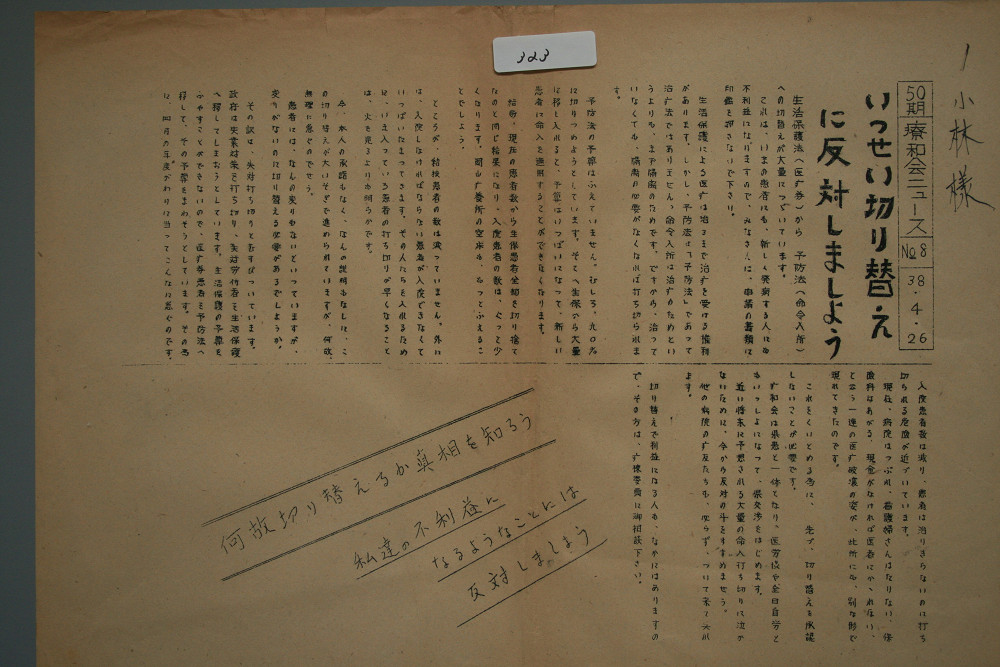 323
1
小林様
50期 療和会ニュース No8 38.4.26
いっせい切り替え
に反対しましよう
生活保護法へ(医疒券)から 予防法へ(命令入所)
への切替えが大量につづいています。
これは、いまの患者にも、新しく発病する人にも
不利益になりますので、みなさんは、申請の書類に
印鑑を押さないで下さい。
生活保護による医疒は治るまで治疒を受ける権利
があります。しかし、予防法は予防法であって
治疒法ではありません。命令入所は治疒のためとい
うよりも、まず隔離のためです。ですから、治って
いなくても、隔離の必要がなくなれば打ち切られま
す。
予防法の予算はふえていません。むしろ、
に切りつめようとしています。そこへ生保から大量
に移し入れると、予算はいっぱいになって、新しい
患者に命令を適用することができなくなります。
結局、現在の患者数から生保患者全部を切り捨て
なのと同じ結果になり、入院患者の数は、ぐっと少
くなります。岡山療養所の空床も、もっとふえるこ
とでしょう。
ところが、結核患者の数は減っていません。外に
は、入院しなければならない患者が入院できなくて
いっぱいたまってきます。その人たちを入れるため
に、いま入っている患者の打ち切りが早くなること
は、火を見るより明らかです。
今、本人の承諾もなく、なんの説明もなしに、こ
の切り替えが大いそぎで進められていますが、何故
無理に急ぐのでせう。
患者には、なんの変りもないといっていますが、
変りがないのに切り替える必要があるでしようか。
その訳は、失対打ち切りと結びついています。
政府は失業対策を打ち切り、失対労仂者を生活保護
へ移してしまおうとしています。生活保護の予算を
ふやすことができないので、医疒券患者を予防法へ
移して、その予算をまわそうとしています。その為
に、四月の年度がわりに当ってこんなに急ぐのです。
入院患者数は減り、患者は治りきらないのに打ち
切られる危険が近づいています。
現在、病院はつぶれ、看護婦さんはたりない、保
険料はあがる、現金がなければ医者にかゝれない、
と云う一連の医疒破壊の姿が、此所にも、別な形で
現れてきたのです。
これをくいとめる為に、先づ、切り替えを承諾
しないことが必要です。
疒和会は県患と一体となり、医労協や全日自労と
もいっしよになって、県交渉をはじめます。
近い将来に予想される大量の命入打ち切りに泣か
ないために、今から反対の斗をすすめませう。
他の病院の疒友たちも、必らず、ついて来て呉れ
ます。
切り替えで利益になる人も、なかにはありますの
で、その方は、疒旗委員に御相談下さい。
何故切り替えるか真相を知ろう
私達の不利益に
なるようなことには
反対しましよう